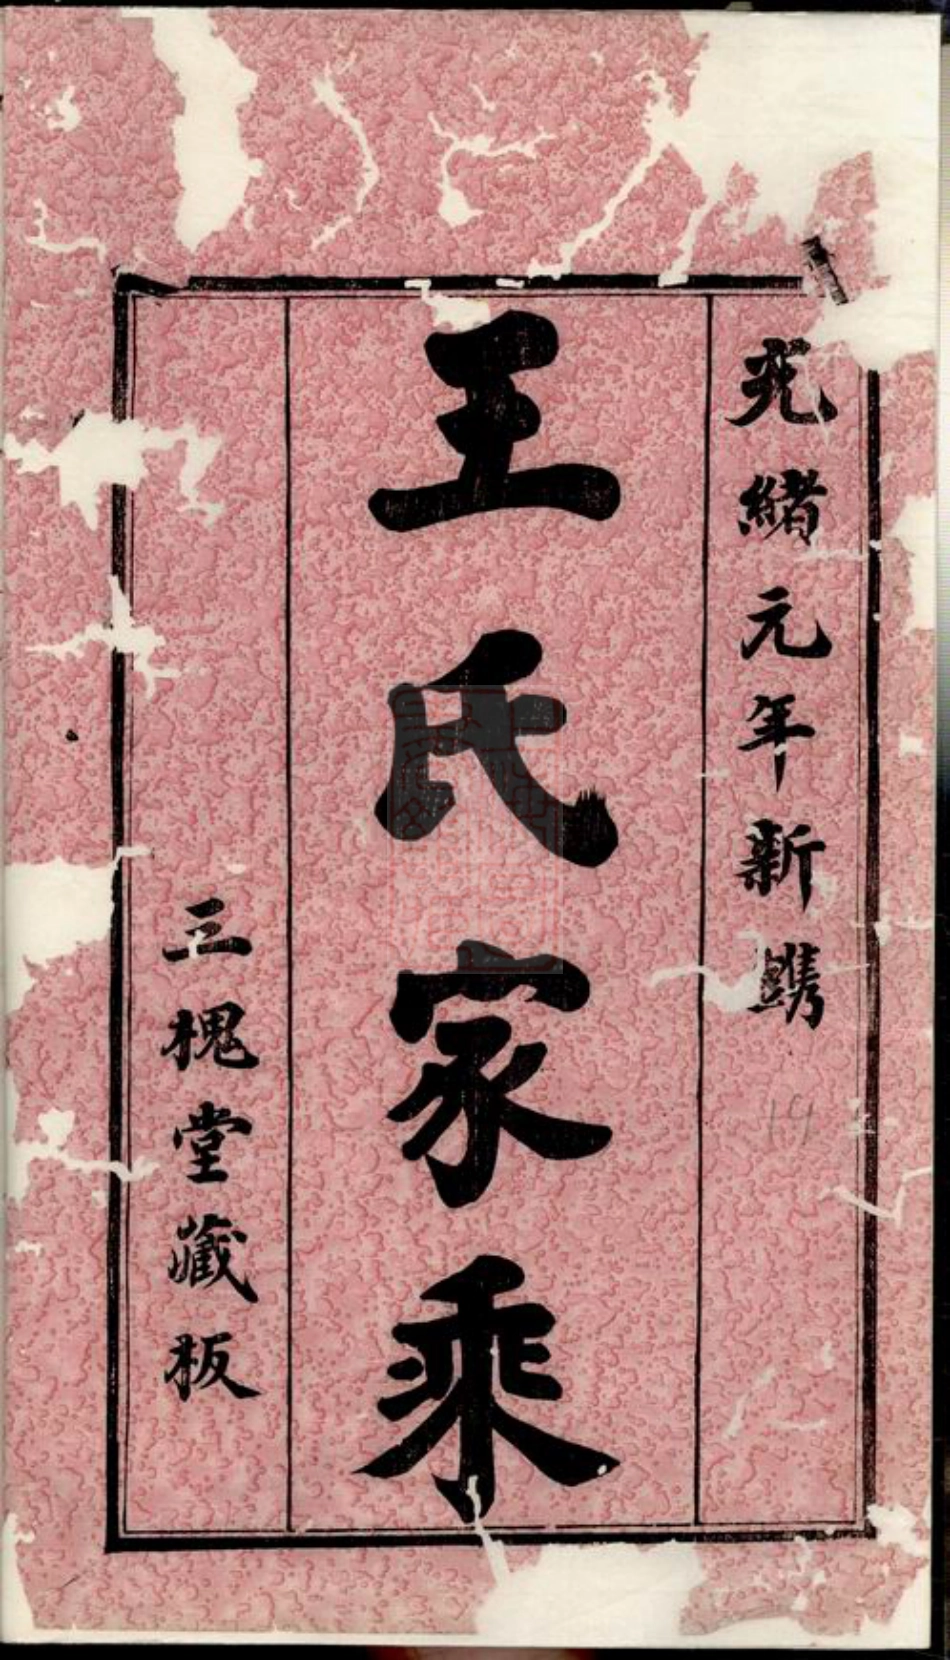 光緒元年新鐫
王氏家乘
三槐堂藏板